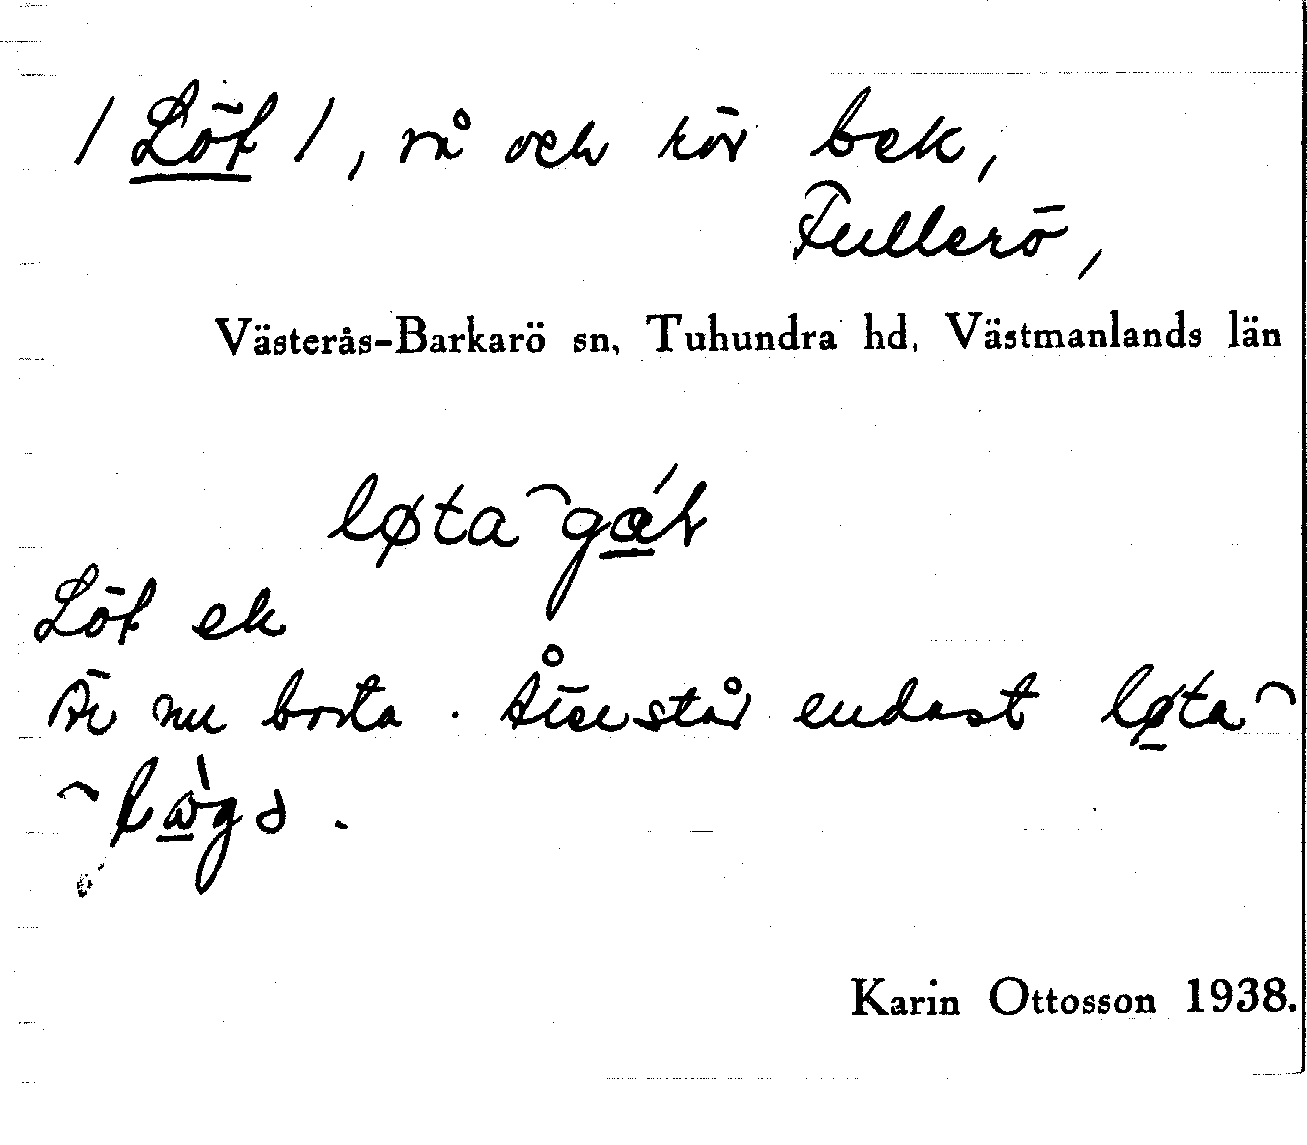 / Löt /, rå och rör bek,
Fullerö,
Västerås-Barkarö sn, Tuhundra hd, Västmanlands län
løta⁀
Löt ek
Är nu borta. Återstår endast løta⁀
Karin Ottosson 1938.